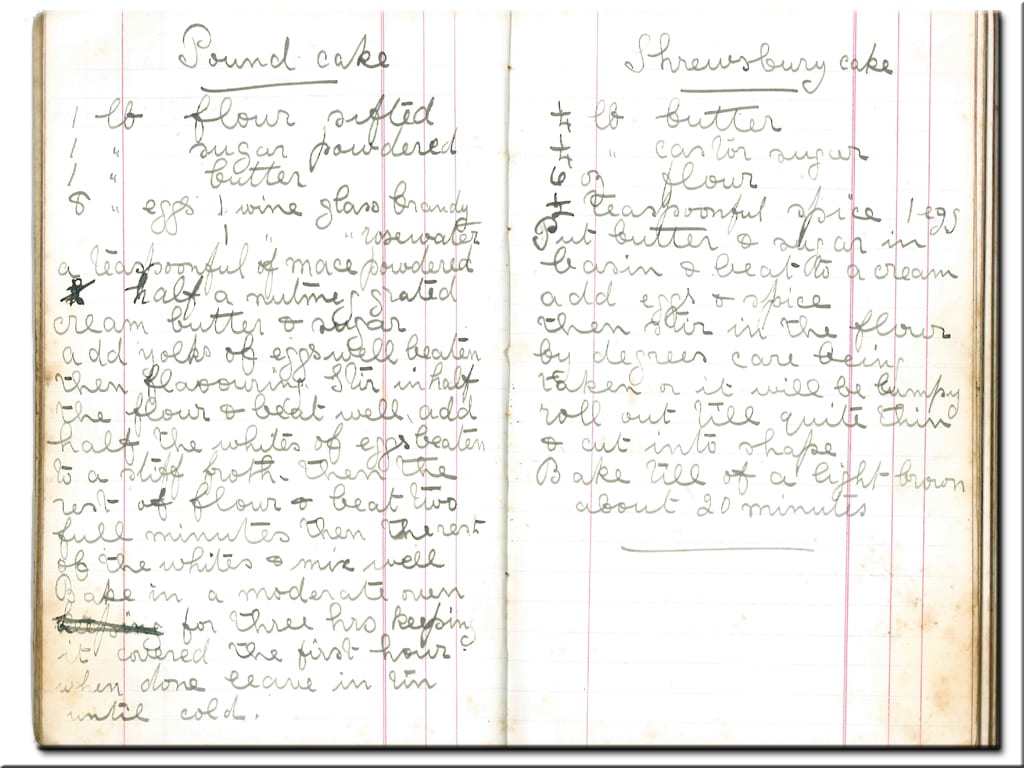 Pound cake
1 lb flour sifted
1 " sugar powdered
1 " butter
8 " eggs 1 wine glass brandy
1 " " rosewater
a teaspoonful of mace powdered
half a nutmeg grated
cream butter & sugar
add yolks of eggs well beaten
then flavouring Stir in half
the flour & beat well, add
half the whites of eggs beaten
to a stiff froth. then the
rest of flour & beat two
full minutes then the rest
of the whites & mix well
Bake in a moderate oven
for three hrs keeping
it covered the first hour
when done leave in tin
until cold.
Shrewsbury cake
1/4 lb butter
1/4 " castor sugar
6 oz flour
1/4 teaspoonful spice 1 egg
Put butter & sugar in
basin & beat to a cream
add eggs & spice
then stir in the flour
by degrees care being
taken or it will be lumpy
roll out till quite thin
& cut into shape
Bake till of a light brown
about 20 minutes